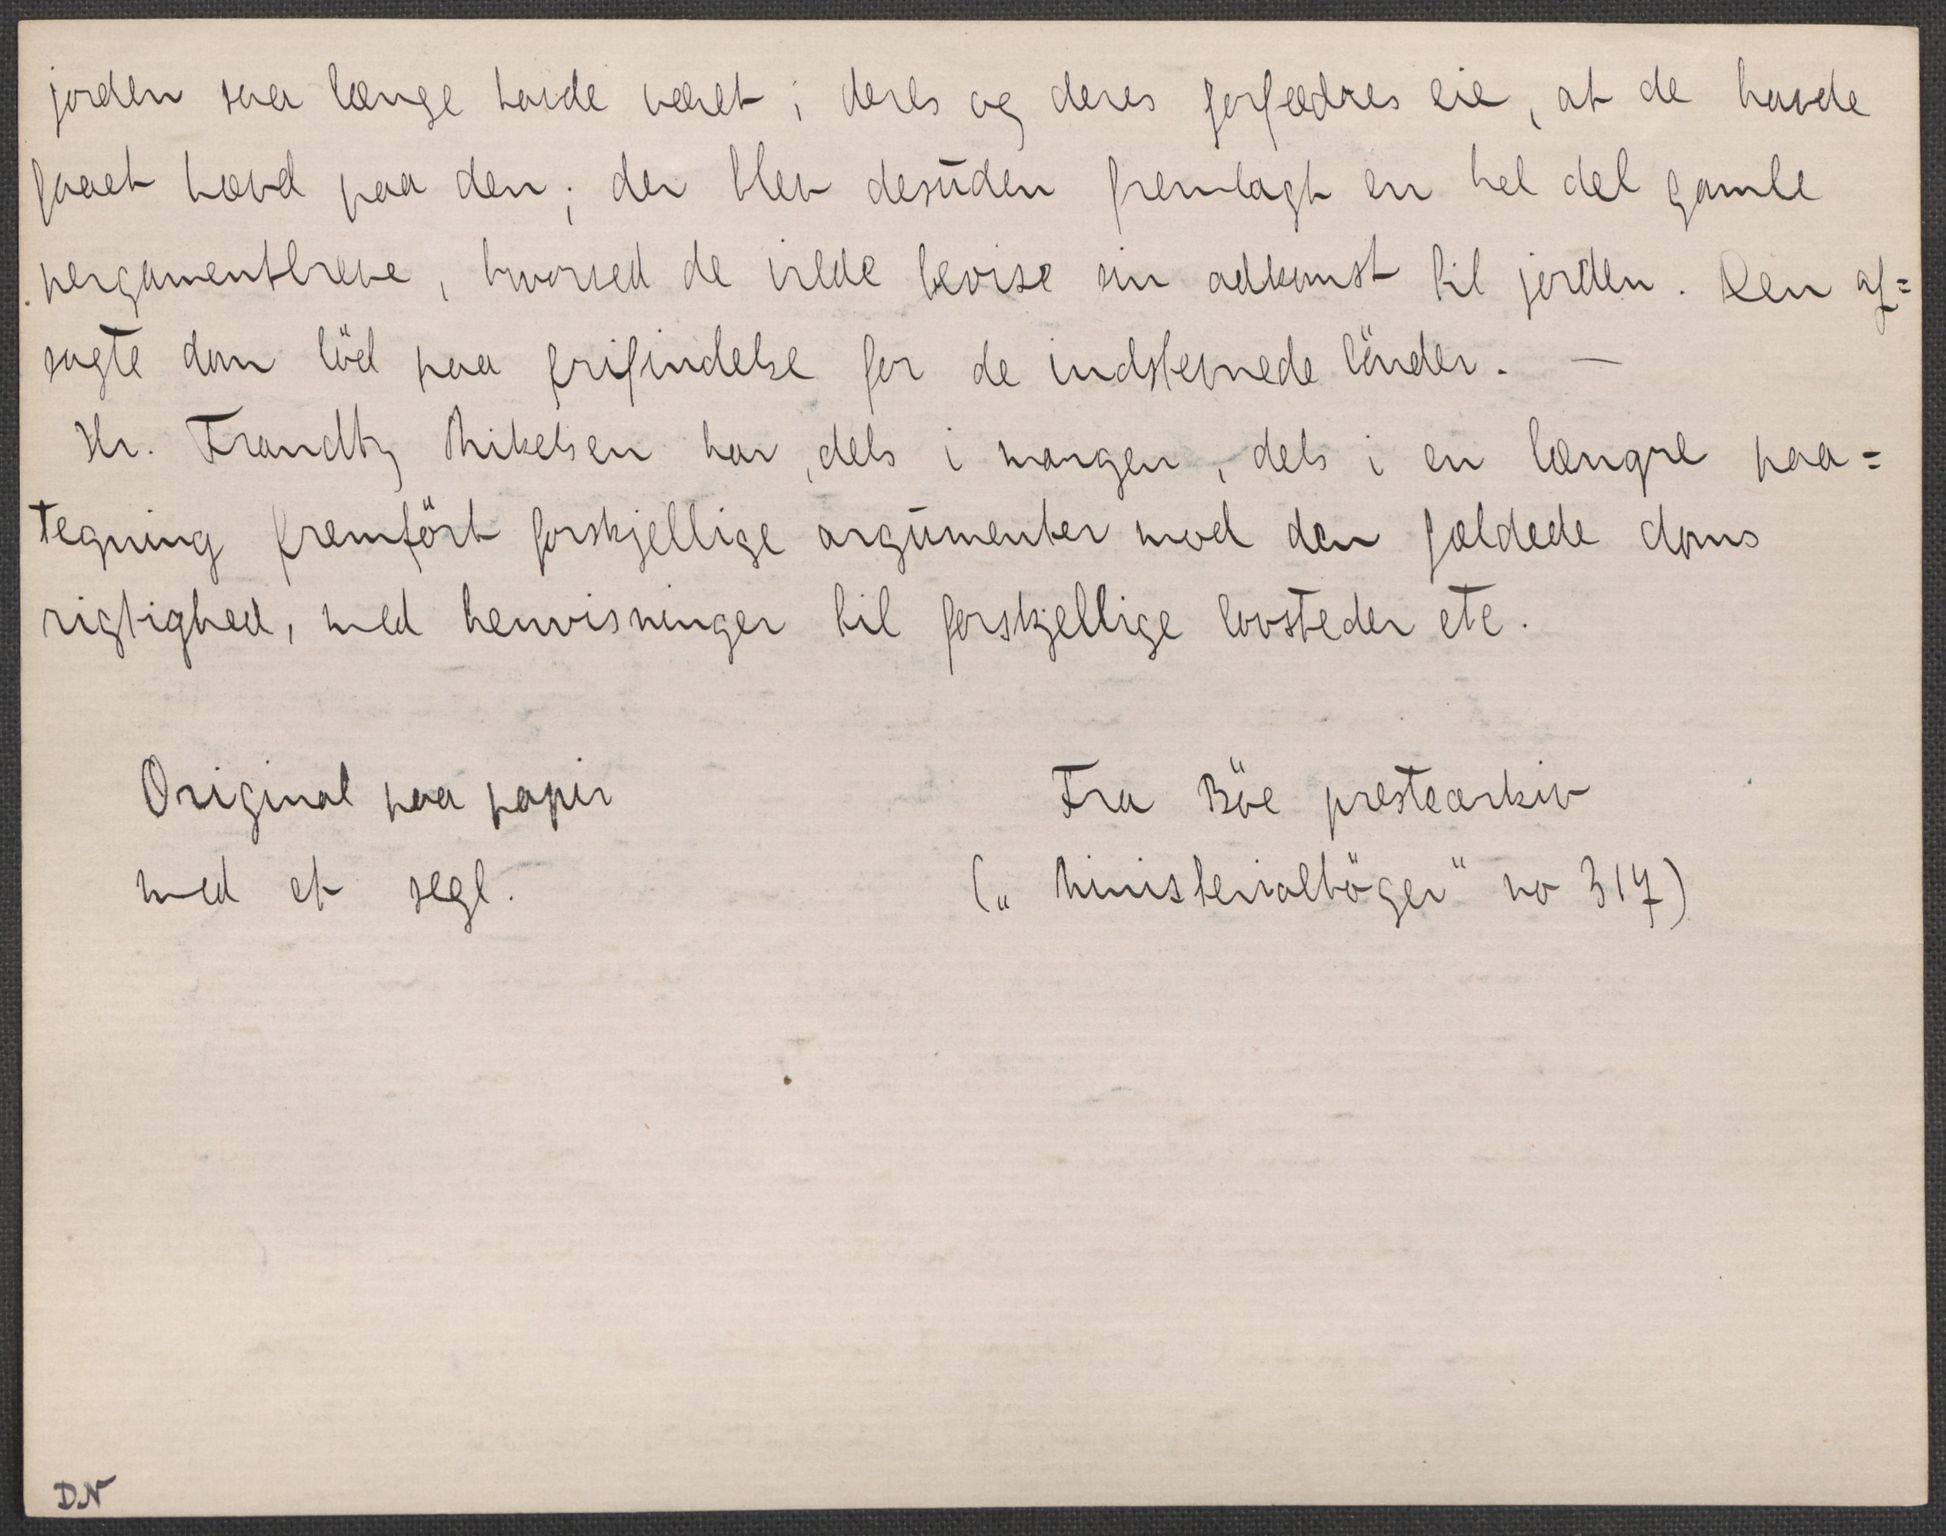 jorden saa længe havde været i deres og deres forfædres eie, at de havde
faaet hævd paa den; der blev desuden fremlagt en hel del gamle
pergamentbreve, hvorved de vilde bevise sin adkomst til jorden. Den af=
sagte dom löd paa frifindelse for de indstevnede bönder. —
Hr. Frandtz Mikelsen har, dels i margen, dels i en længre paa=
tegning fremfört forskjellige argumenter mod den fældede doms
rigtighed, med henvisninger til forskjellige lovsteder etc.
Original paa papir
med et segl.
Fra Böe prestearkiv
(„Ministerialböger" no 317)
DN